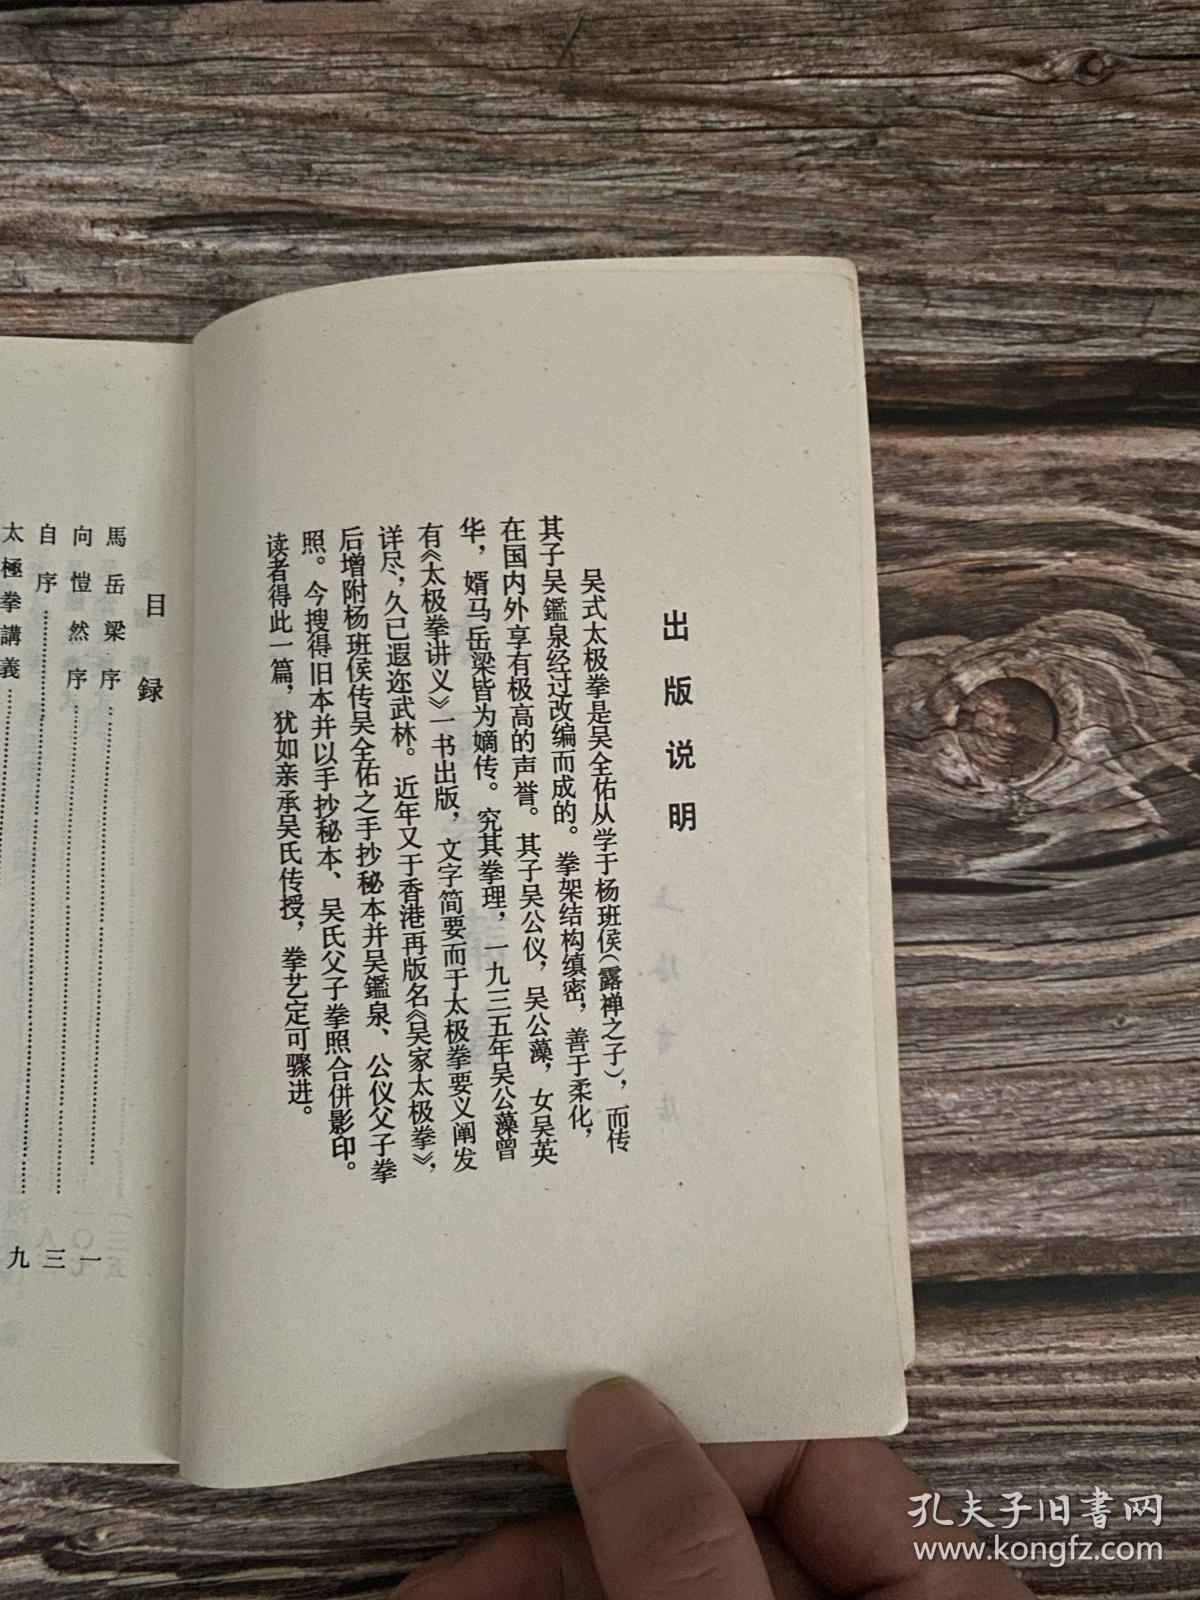 出版说明
吴式太极拳是吴全佑从学于杨班侯(露禅之子)，而传
其子吴鑑泉经过改编而成的。拳架结构缜密，善于柔化，
在国内外享有极高的声誉。其子吴公仪，吴公藻，女吴英
华，婿马岳梁皆为嫡传。究其拳理，一九三五年吴公藻曾
有《太极拳讲义》一书出版，文字简要而于太极拳要义阐发
详尽，久已遐迩武林。近年又于香港再版名《吴家太极拳》，
后增附杨班侯传吴全佑之手抄秘本并吴鑑泉、公仪父子拳
照。今搜得旧本并以手抄秘本、吴氏父子拳照合併影印。
读者得此一篇，犹如亲承吴氏传授，拳艺定可骤进。
目録
馬岳梁序……………………一
向愷然序……………………三
自序……………………九
太極拳講義……………………
孔夫子旧书网
www.kongfz.com